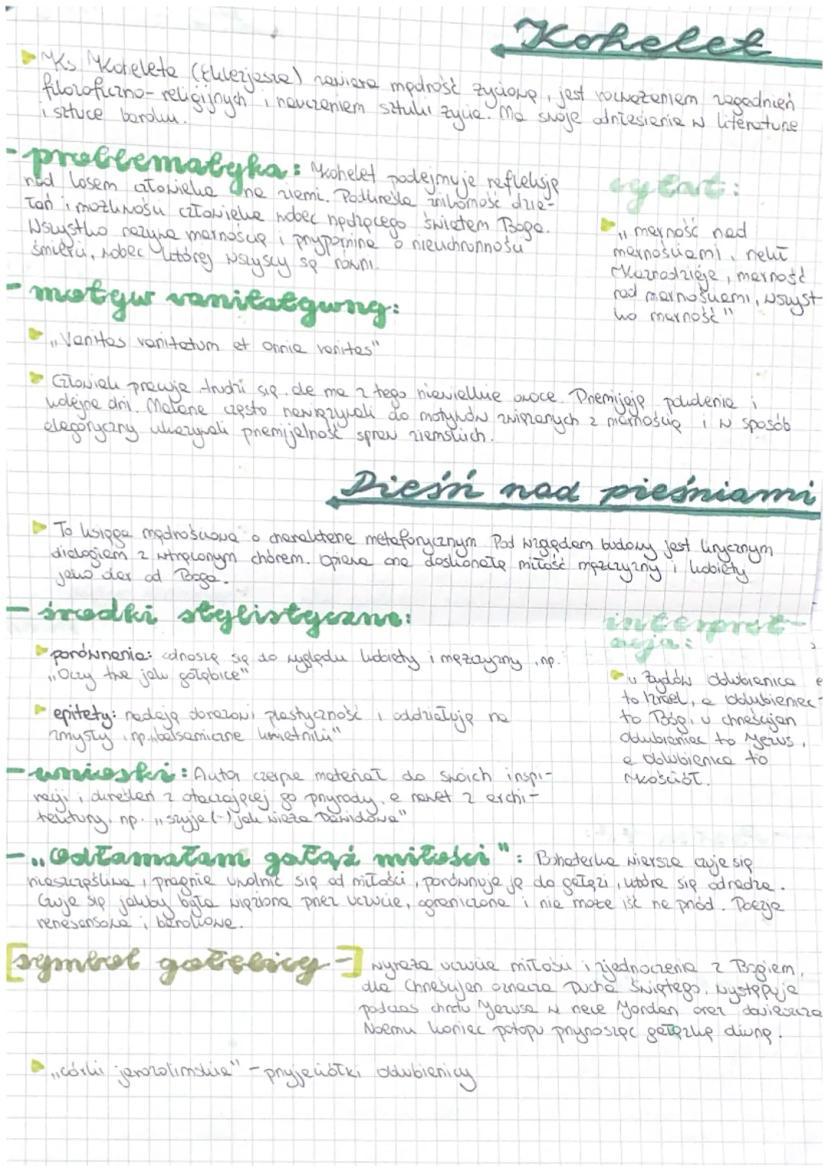 Kohelet
Ks. Koheleta (Eklezjasza) zawiera mądrość życiową, jest rozważaniem zagadnień
filozoficzno-religijnych i nauczaniem sztuki życia. Ma swoje odniesienia w literaturze
i sztuce baroku.
- problematyka: Kohelet podejmuje refleksję
nad losem człowieka na ziemi. Podkreśla znikomość dzia-
łań i możliwości człowieka wobec rządzącego światem Boga.
Wszystko nazywa marnością i przypomina o nieuchronności
śmierci, wobec której wszyscy są równi.
cytat:
"marność nad
marnościami, rzekł
Kaznodzieja, marność
nad marnościami, wszyst
ko marność"
- motyw vanitatywny:
"Vanitas vanitatum et omnia vanitas"
Człowiek pracuje, trudzi się, ale ma z tego niewielkie owoce. Przemijają pokolenia i
kolejne dni. Malarze często nawiązywali do motywów związanych z marnością i w sposób
alegoryczny ukazywali przemijalność spraw ziemskich.
Pieśń nad pieśniami
To księga mądrościowa o charakterze metaforycznym. Pod względem budowy jest lirycznym
dialogiem z wtrąconym chórem. Opiewa ona doskonałą miłość mężczyzny i kobiety
jako dar od Boga.
- środki stylistyczne:
porównania: odnoszą się do wyglądu kobiety i mężczyzny, np.
"Oczy twe jak gołębice"
epitety: nadają obrazowi plastyczność i oddziałują na
zmysły, np. "balsamiczne kwietniki"
interpret-
acja:
u Żydów oblubienica
to Izrael, a oblubieniec-
to Bóg, u chrześcijan
oblubieniec to Jezus,
a oblubienica to
Kościół.
- wnioski: Autor czerpie materiał do swoich inspi-
racji i określeń z otaczającej go przyrody, a nawet z archi-
tektury, np. "szyja (-) jak wieża Dawidowa"
- "Odłamałam gałąź miłości": Bohaterka wiersza czuje się
nieszczęśliwa i pragnie uwolnić się od miłości, porównuje ją do gałęzi, która się odradza.
Czuje się jakby była więziona przez uczucie, ograniczona i nie może iść na przód. Poezja
renesansowa i barokowa.
[symbol gołębicy -] wyraża uczucie miłości i zjednoczenia z Bogiem,
dla Chrześcijan oznacza Ducha Świętego. Występuje
podczas chrztu Jezusa w rzece Jordan oraz
Noemu koniec potopu przynosząc gałązkę oliwną.
"córki jerozolimskie" - przyjaciółki oblubienicy